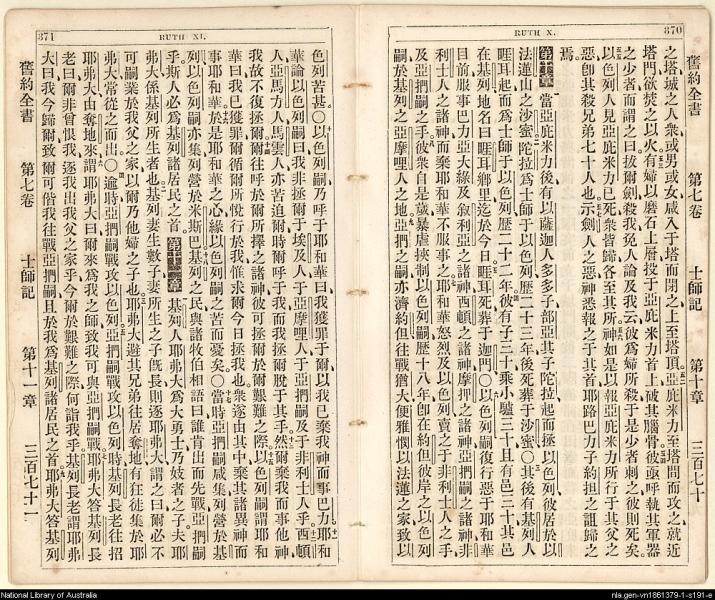 370
RUTH X.
舊約全書 第七卷 士師記 第十章 三百七十
之塔城之人眾或男或女咸入于塔而閉之上至塔頂亞庇米力至塔間而攻之就近
塔門欲焚之以火有婦以磨石上層投于亞庇米力首上破其腦骨彼亟呼執其軍器
之少者而謂之曰拔爾劍殺我免人論及我云彼為婦所殺于是少者刺之彼則死矣
以色列人見亞庇米力已死眾皆歸各至其所神如是以報亞庇米力所行于其父之
惡卽其殺兄弟七十人也示劍人之惡神悉報之于其首耶路巴力子約担之詛歸之
焉
第十章 當亞庇米力後有以薩迦人多多子部亞其子陀拉起而拯以色列彼居於以
法蓮山之沙蜜陀拉為士師于以色列歷二十三年後死葬于沙蜜○其後有基列人
睚耳起而為士師于以色列歷二十二年彼有子三十乘小驢三十且有邑三十其邑
在基列地名曰睚耳鄉里迄於今日睚耳死葬于迦們○以色列嗣復行惡于耶和華
目前服事巴力亞大綠及敘利亞之諸神西頓之諸神摩押之諸神亞捫嗣之諸神非
利士人之諸神而棄耶和華不服事之耶和華怒烈及以色列賣之于非利士人之手
及亞捫嗣之手彼眾自是歲暴虐挾制以色列嗣歷十八年卽在約但彼岸之以色列
嗣於基列之亞摩哩人之地亞捫之嗣亦濟約但往戰猶大便雅憫以法蓮之家致以
371
RUTH XI.
色列苦甚○以色列嗣乃呼于耶和華曰我獲罪于爾以我已棄我神而事巴力耶和
華論以色列嗣曰我非拯爾于埃及人于亞摩哩人于亞捫嗣及于非利士人乎西頓
人亞馬力人馬雲人亦苦迫爾時爾呼于我而我拯爾脫于其手然爾棄我而事他神
我故不復拯爾爾往呼於爾所擇之諸神彼可拯爾於爾艱難之際以色列嗣謂耶和
華曰我已獲罪爾循爾所悅行於我惟求爾今日拯我也眾遂由其中棄其諸異神而
事耶和華於是耶和華之心緣以色列嗣之苦而憂矣○當時亞捫嗣咸集列營於基
列以色列嗣亦集列營於米斯巴基列之民與諸牧伯相語曰誰肯出而先戰亞捫嗣
乎斯人必為基列諸居民之首 第十一章 基列人耶弗大為大勇士乃妓者之子夫耶
弗大係基列所生者也基列妻生數子妻所生之子旣長則逐耶弗大謂之曰爾必不
可嗣業於我父之家以爾乃他婦之子也耶弗大遂避其兄弟往居奪地有狂徒集於耶
弗大常從之而出○逾時亞捫嗣戰攻以色列亞捫嗣戰攻以色列時基列長老往招
耶弗大由奪地來謂耶弗大曰爾來為我之師致我可與亞捫嗣戰耶弗大答基列長
老曰爾非曾恨我逐我出我父之家乎今爾於艱難之際何詣我乎基列長老謂耶弗
大曰我今歸爾致爾可偕我往戰亞捫嗣且於我為基列諸居民之首耶弗大答基列
舊約全書 第七卷 士師記 第十一章 三百七十一
National Library of Australia
nla.gen-vn1861379-1-s191-e